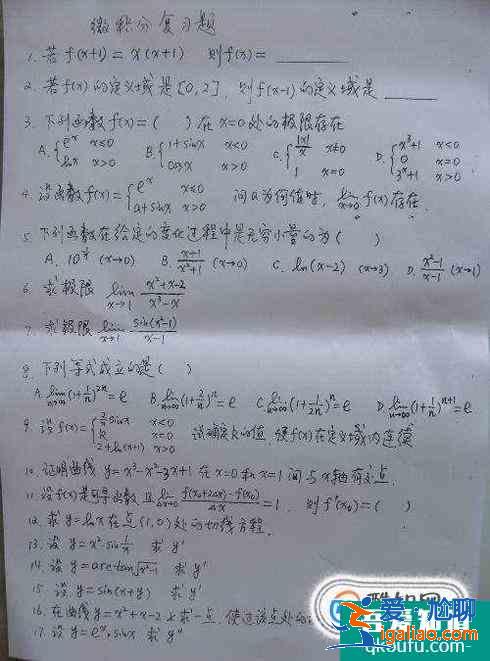 微积分复习题
1. 若f(x+1)=x(x+1) 则f(x)=
2. 若f(x)的定义域是[0,2],则f(x-1)的定义域是
3. 下列函数f(x)=( )在x=0处的极限存在
A. { e^x x≤0 ; lnx x>0 B. { 1+sinx x<0 ; cosx x>0 C. { |x|/x x≠0 ; 1 x=0 D. { x³+1 x<0 ; 0 x=0 ; 3^x+1 x>0
4. 设函数f(x)= { e^x x≤0 ; a+sinx x>0 问a为何值时, lim x→0 f(x)存在.
5. 下列函数在给定的变化过程中是无穷小量的为( )
A. 10^(1/x) (x→0) B. (x+1)/(x²+1) (x→0) C. ln(x-2) (x→3) D. (x²-1)/(x-1) (x→1)
6. 求极限 lim x→1 (x²+x-2)/(x³-x)
7. 求极限 lim x→1 sin(x²-1)/(x-1)
8. 下列等式成立的是( )
A. lim n→∞ (1+1/n)^2n = e B. lim n→∞ (1+2/n)^n = e C. lim n→∞ (1+1/2n)^n = e D. lim n→∞ (1+1/n)^n+1 = e
9. 设f(x)= { sinx x<0 ; k x=0 ; 2+ln(x+1) x>0 试确定k的值,使f(x)在定义域内连续
10. 证明曲线 y=x³-x²-3x+1 在x=0和x=1间与x轴有交点.
11. 设f(x)是可导函数且 lim Δx→0 (f(x₀+2Δx)-f(x₀))/Δx =1, 则f'(x₀)=( )
12. 求y=lnx在点(1,0)处的切线方程.
13. 设y=x²·sin1/x 求y'
14. 设y=arctan√(x²-1) 求y'
15. 设y=sin(x+y) 求y'
16. 在曲线y=x²+x-2上求一点,使过该点处的
17. 设y=e^x·sinx 求y''
爱尬聊
igaliao.com
qksufu.com